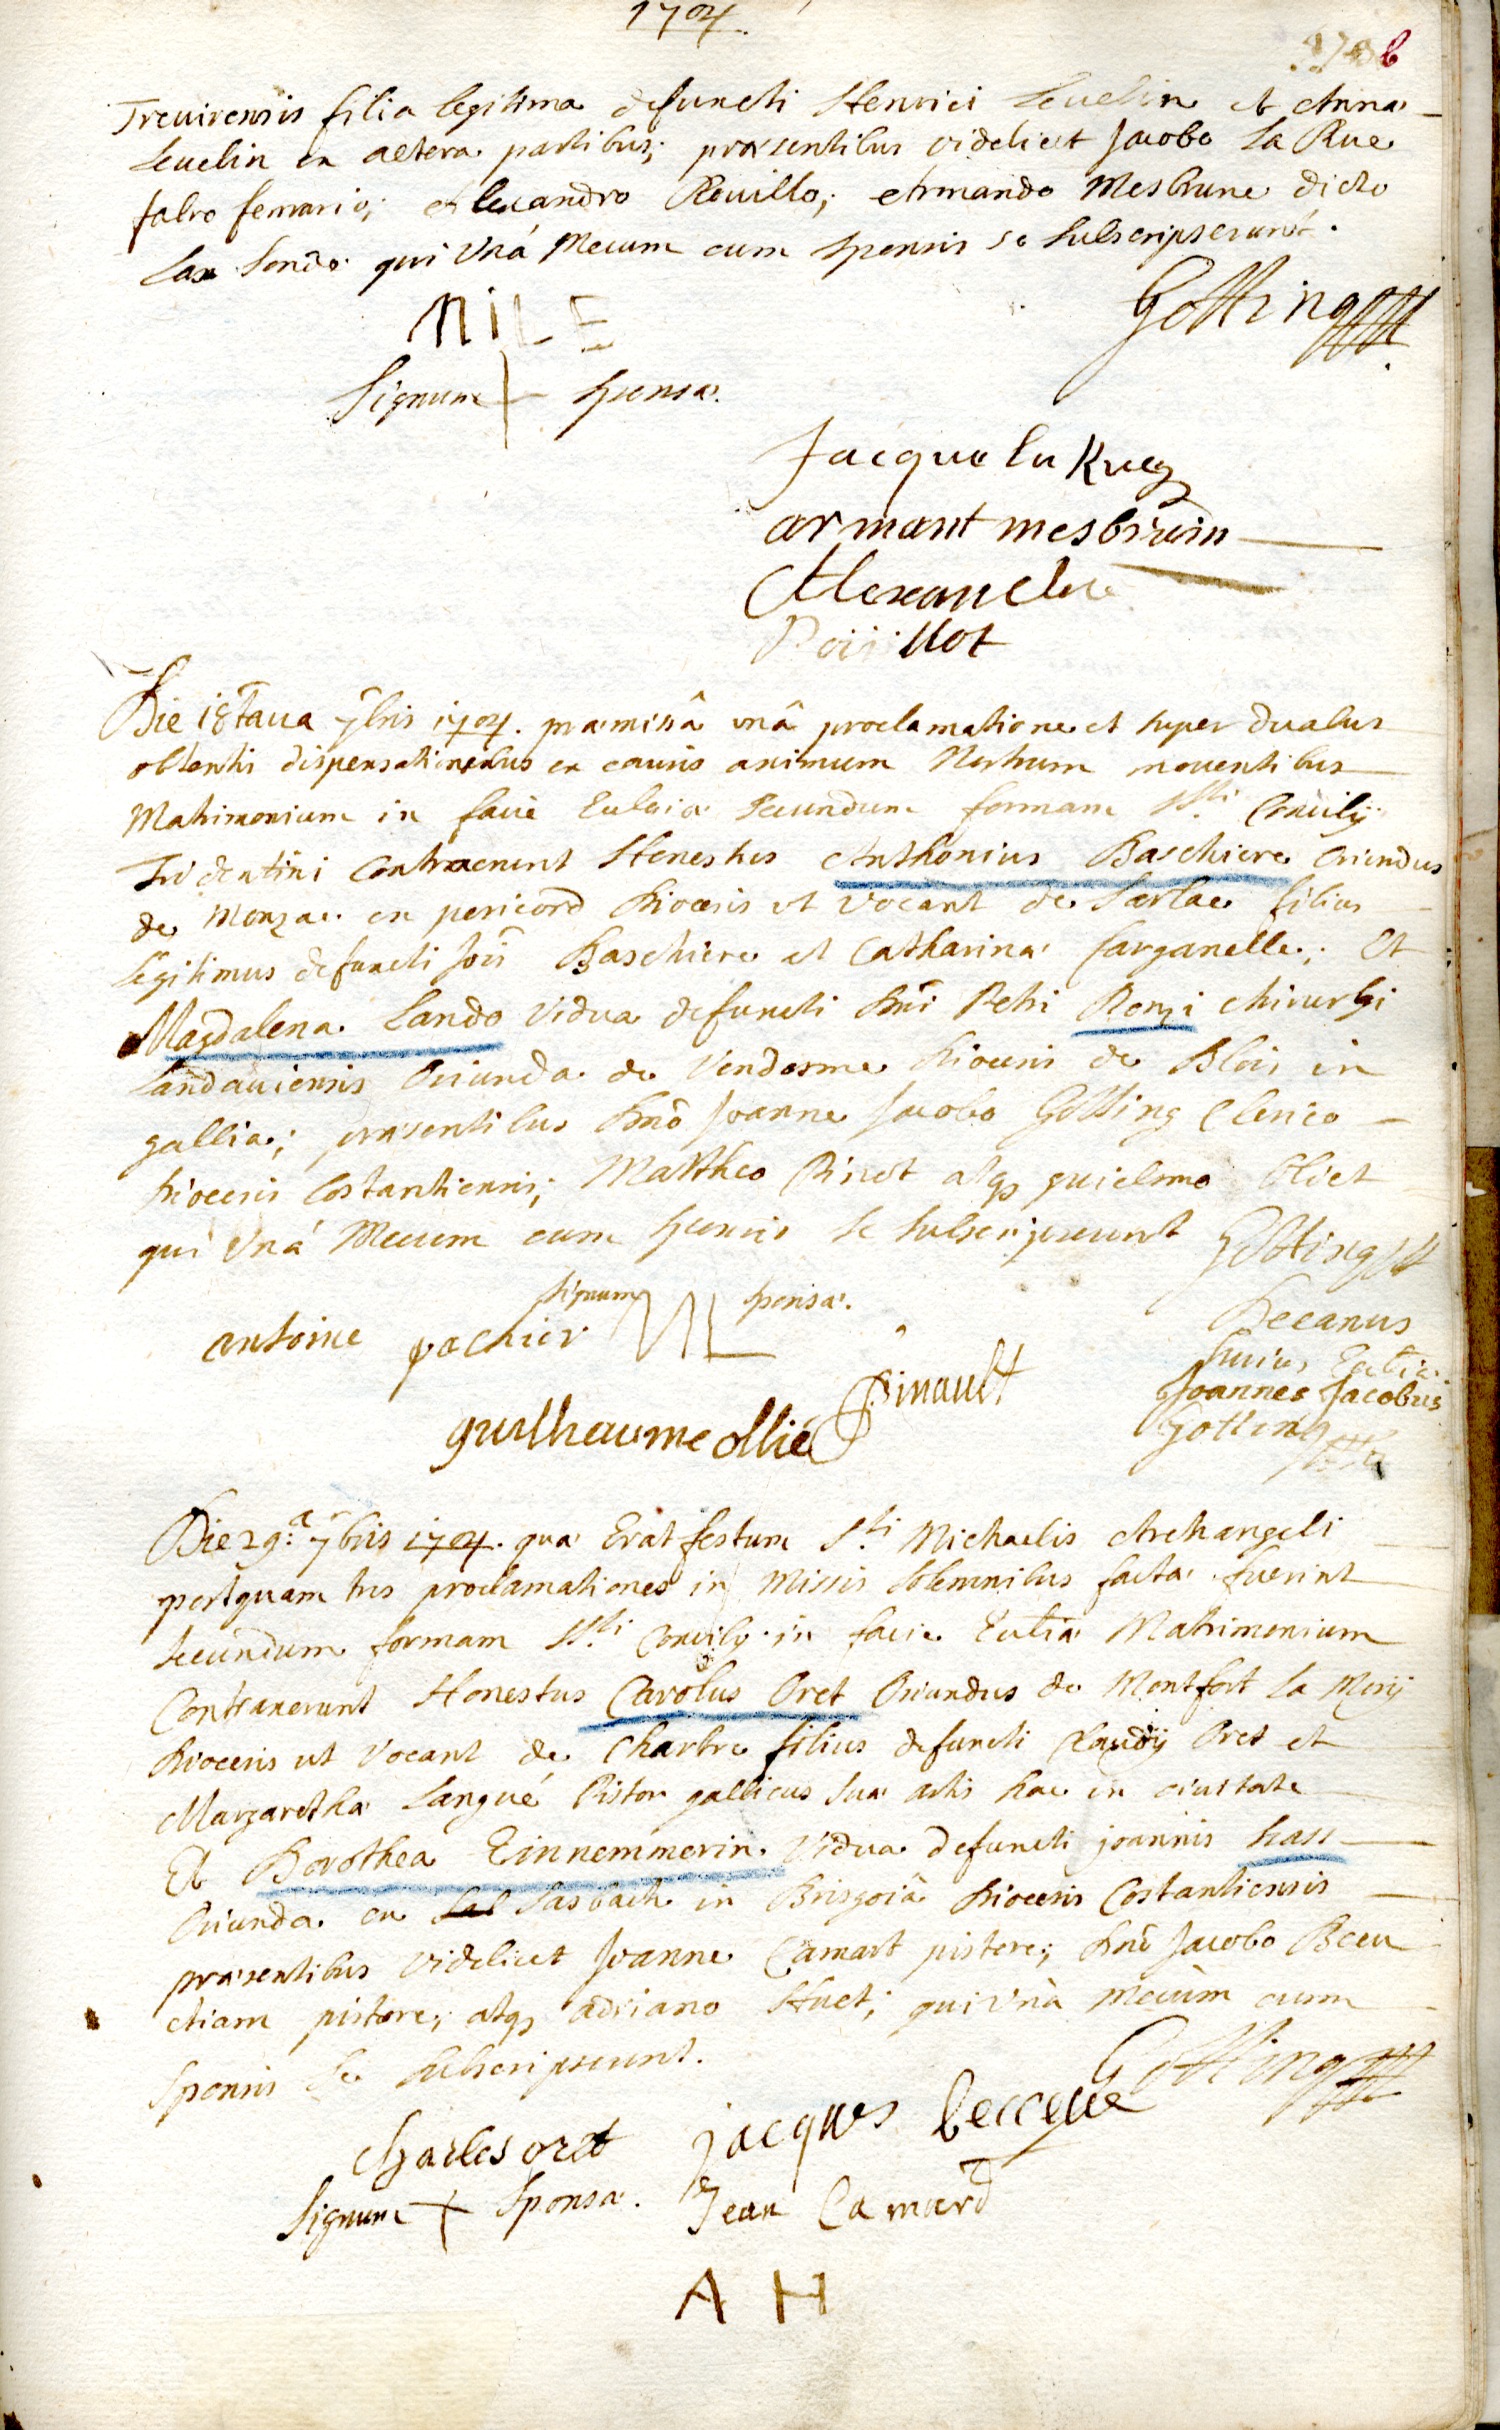 1704.
b
Trevirensis filia legitima defuncti Henrici Levelin et Anna
Levelin ex altera partibus; præsentibus videlicet Jacobo La Rue
fabro ferrario; Alexandro Rouillo; Armando Mesbrune dicto
qui Unà Mecum cum sponsis se subscripserunt.
Gotting
NILE
Signum + sponsæ.
Jacque la Rue
armant mesbruin
Alexandre
Roüillot
Die 18tava 7bris 1704. præmissâ unâ proclamatione et super duabus
obtentis dispensationibus ex causis animum Nostrum moventibus
Matrimonium in facie Ecclesiæ secundum formam SSti Concilij
Tridentini Contraxerunt Honestus Anthonius Baschiere Oriundus
de Monzac en pericord Diocesis ut vocant de Sarlac filius
legitimus defuncti Jois Baschiere et Catharina Carganelle; Et
Magdalena Lando Vidua defuncti Dni Petri Ronzi Chirurgi
Landaviensis Oriunda de Vendosme Diocesis de Blois in
gallia; præsentibus Dno Joanne Jacobo Gotting Clerico
Diocesis Costantiensis; Mattheo Pinot atq guielmo Oliet
qui Unà Mecum cum sponsis se subscripserunt Gotting
Signum ML sponsæ. Decanus
antoine pachier huius Ecclæ
Pinault Joannes Jacobus
guilheaume ollié Gotting
Die 29.a 7bris 1704. qua Erat festum Sti Michaelis Archangeli
postquam tres proclamationes in Missis solemnibus factæ fuerint
secundum formam SSti Concilij in facie Ecclæ Matrimonium
Contraxerunt Honestus Carolus Oret Oriundus de Montfort La Mory
Diocesis ut vocant de Chartre filius defuncti Claudij Oret et
Margaretha Langué Pistor gallicus suæ artis hac in civitate
Et Dorothea Einnemmerin Vidua defuncti joannis hass
Oriunda ex Sasbach in Brisgoiâ Diocesis Costantiensis
præsentibus videlicet Joanne Camart pistore; Dno Jacobo Beeu
etiam pistore; atq adriano Huet; qui unà mecùm cum
Sponsis se subscripserunt. Gotting
Charles oret jacques beccque
Signum + Sponsæ. Jean Camard
A H